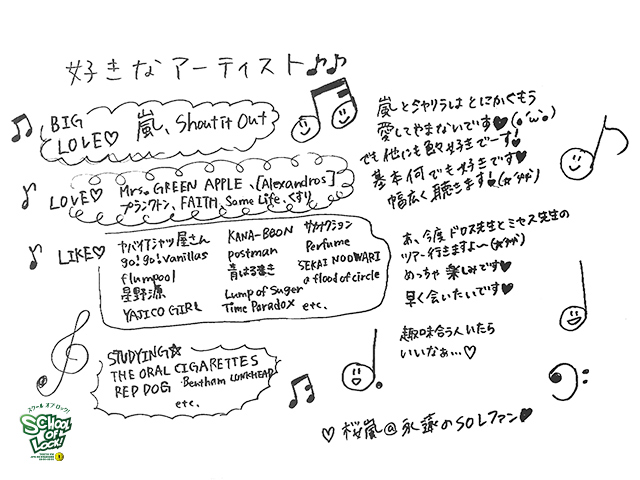 好きなアーティスト
BIG
LOVE♡
嵐、Shout it Out
LOVE♡
Mrs. GREEN APPLE、[Alexandros]
プランクトン、FAITH、Some Life、くすり
LIKE♡
ヤバイTシャツ屋さん
go!go!vanillas
flumpool
星野源
YAJICO GIRL
KANA-BOON
postman
青はる書き
Lump of Suger
Time Paradox
サカナクション
Perfume
SEKAI NO OWARI
a flood of circle
etc.
STUDYING☆
THE ORAL CIGARETTES
RED DOG Bentham LUNKHEAD
etc.
嵐とシャリラはとにかくもう
愛してやまないです♥(●'ω'●)
でも他にも色々好きでーす!
基本何でも好きです♥
幅広く聴きます!
あ、今度ドロス先生とミセス先生の
ツアー行きますよ〜
めっちゃ楽しみです♥
早く会いたいです♥
趣味合う人いたら
いいなぁ…♡
♡桜嵐@永遠のSOLファン♥
スクール オブ ロック!
SCHOOL
OF
LOCK!